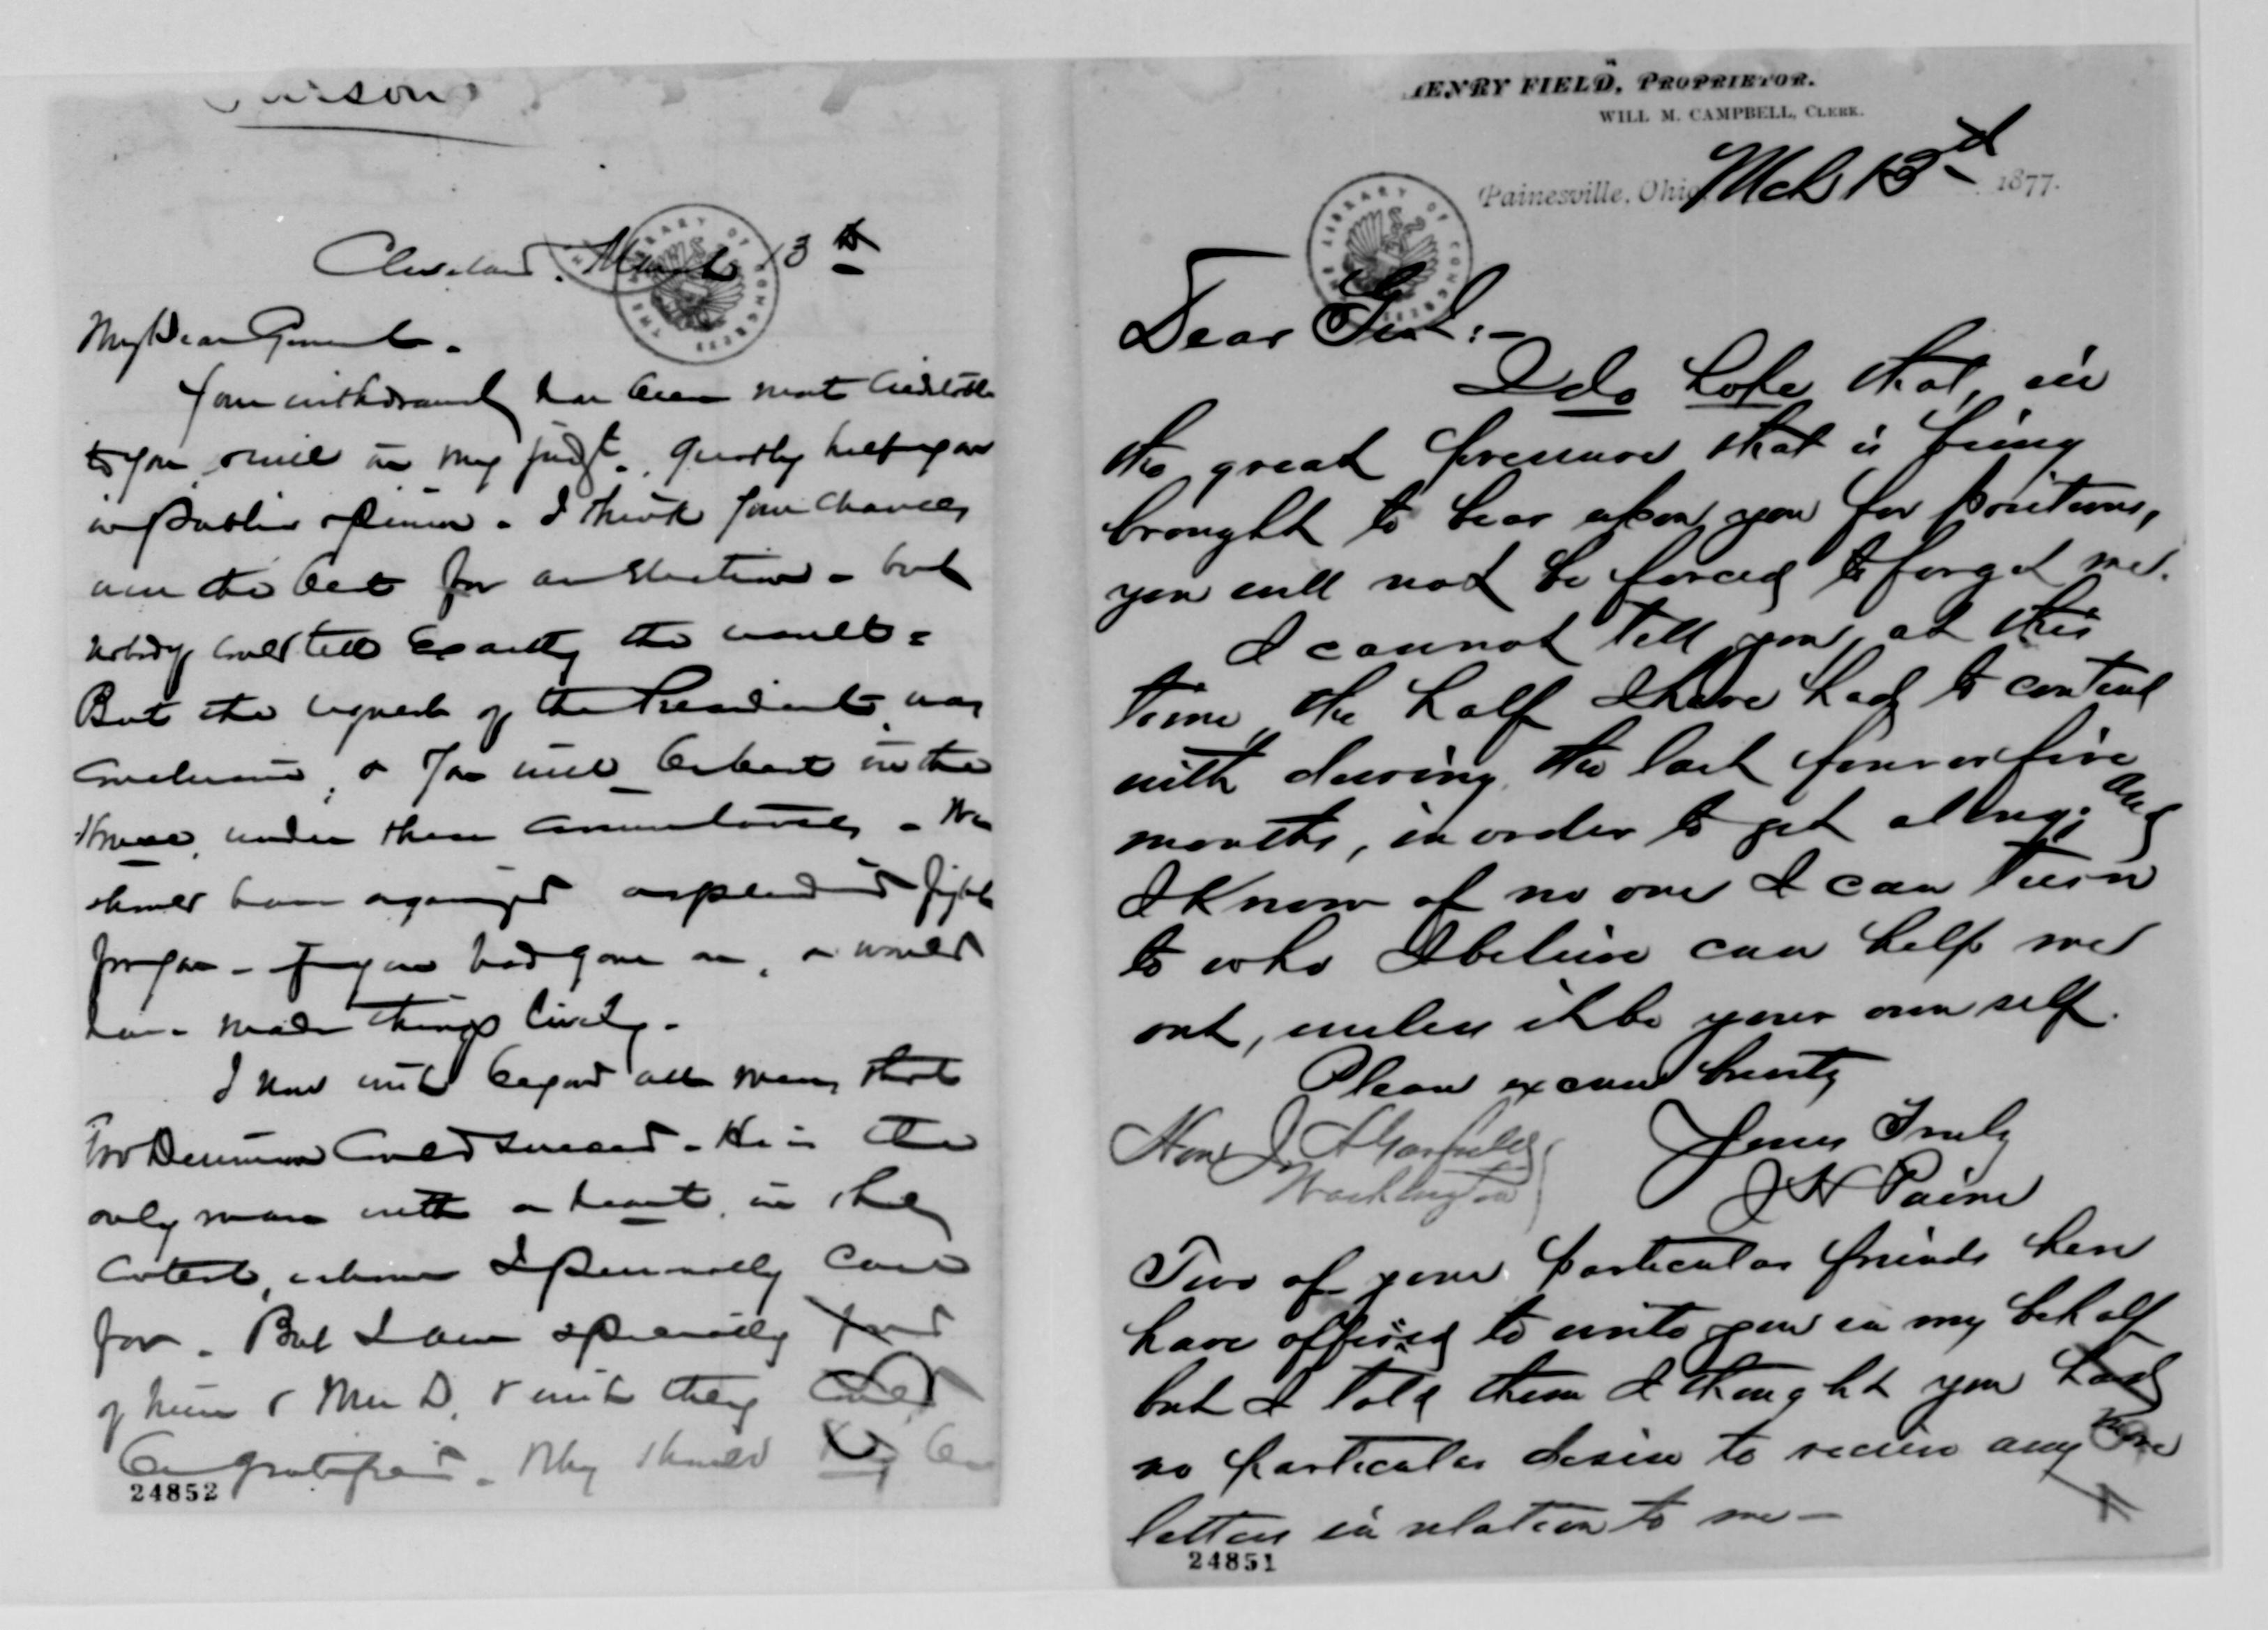 Cleveland, March 13th
My Dear General.
Your withdrawal has been most creditable
to you, & will in my judgt., greatly help you
in public opinion. I think your chances
were the best for an election - but
nobody could tell exactly the result -
But the request of the President was
conclusive, & you will be best in the
House, under these circumstances. We
should have organized a splendid fight
for you - if you had gone on, & would
have made things lively.
I now wish beyond all men, that
Gov Dennison could succeed. He is the
only man with a heart, in the
contest, whom I personally care
for. But I am especially fond
of him & Mrs D. & wish they could
be gratified. Why should be
24852
HENRY FIELD, PROPRIETOR.
WILL M. CAMPBELL, CLERK.
Painesville, Ohio, Mch 13d 1877.
Dear Sir:-
I do hope that, in
the great pressure that is being
brought to bear upon you for positions,
you will not be forced to forget me.
I cannot tell you, at this
time, the half I have had to contend
with during the last four or five
months, in order to get along; and
I know of no one I can turn
to who I believe can help me
out, unless it be your own self.
Please excuse brevity
Yours Truly
J H Paine
Hon J A Garfield
Washington
Two of your particular friends here
have offered to write you in my behalf
but I told them I thought you had
no particular desire to receive any more
letters in relation to me -
24851
THE LIBRARY OF CONGRESS
THE LIBRARY OF CONGRESS